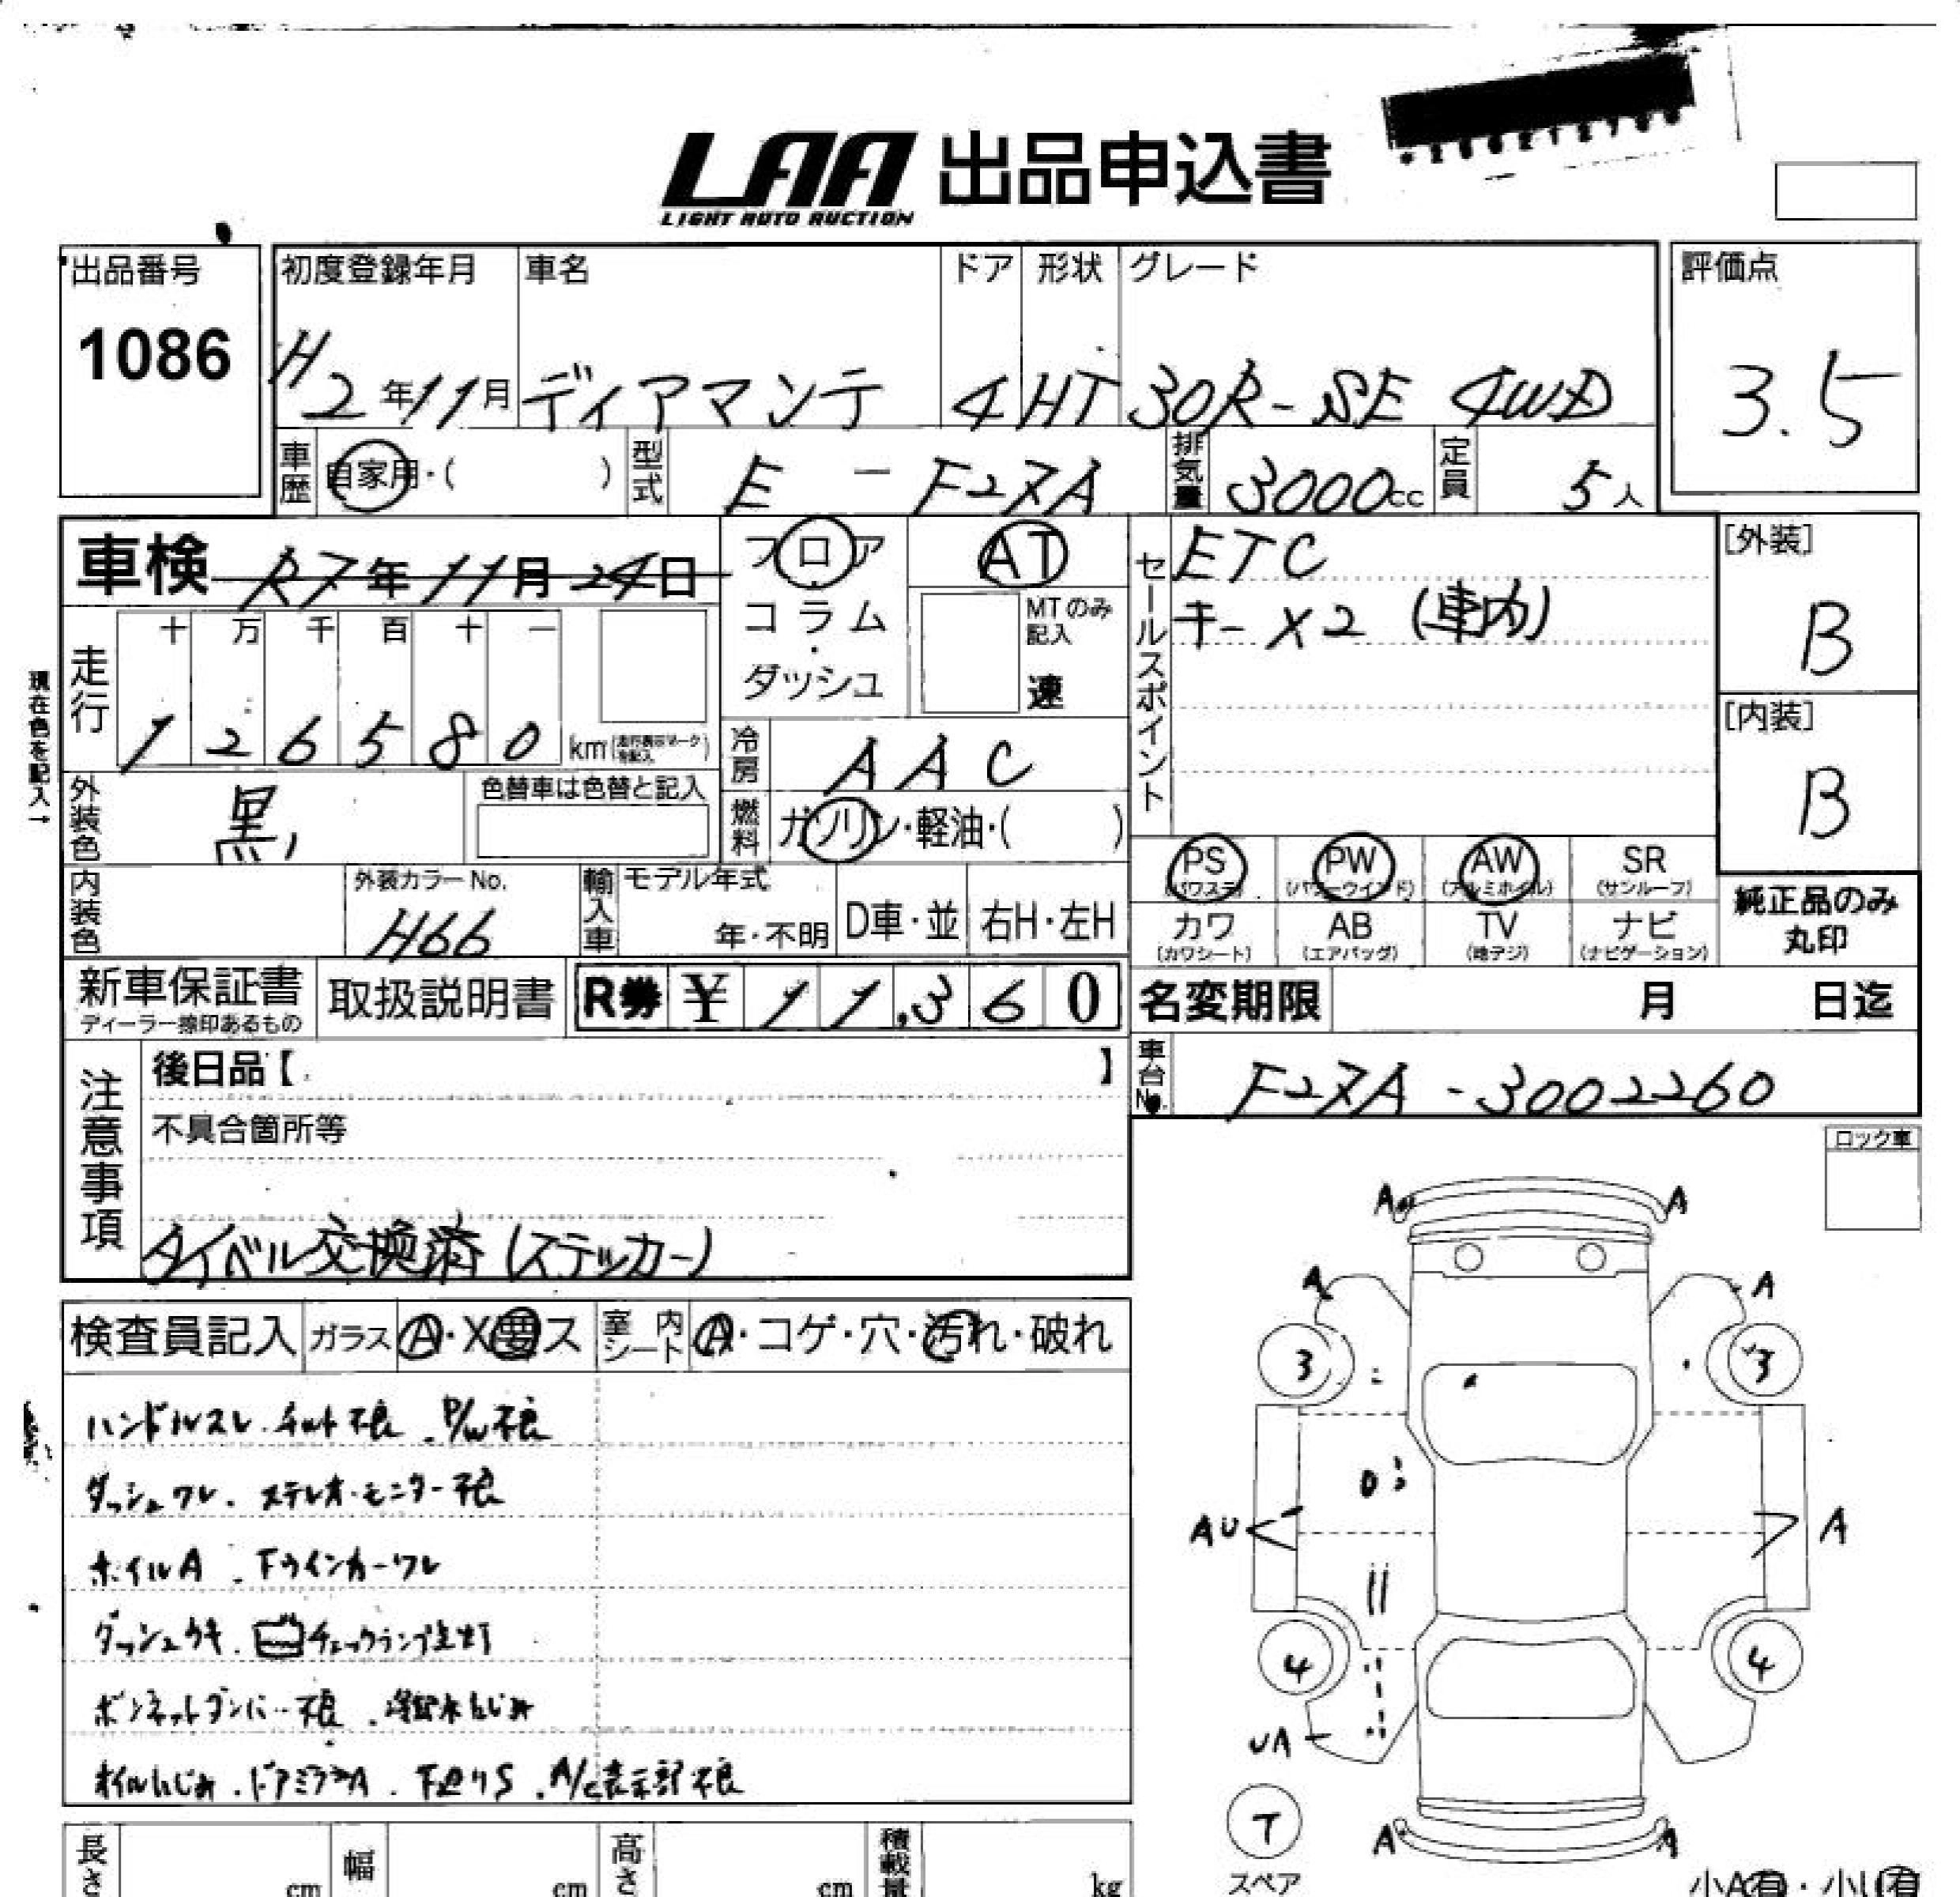 LAA 出品申込書
LIGHT AUTO AUCTION
出品番号 初度登録年月 車名 ドア 形状 グレード 評価点
1086 H2年11月 ディアマンテ 4 HT 30R-SE 4WD 3.5
車歴 自家用・( ) 型式 E - F27A 排気量 3000cc 定員 5人
車検 R7年11月24日 フロア AT セールスポイント ETC [外装]
コラム MTのみ記入 キー×2 (車内) B
ダッシュ 速
走行 十 万 千 百 十 一
1 2 6 5 8 0 km
現在色を記入→
冷房 AAC [内装]
B
外装色 黒 色替車は色替と記入 燃料 ガソリン・軽油・( )
PS PW AW SR
(パワステ) (パワーウインド) (アルミホイル) (サンルーフ)
内装色 外装カラーNo. H66 輸入車 モデル年式 年・不明 D車・並 右H・左H
カワ AB TV ナビ 純正品のみ
(カワシート) (エアバッグ) (地デジ) (ナビゲーション) 丸印
新車保証書 取扱説明書 R券 ¥ 11,360 名変期限 月 日迄
ディーラー捺印あるもの
注意事項 後日品【 】 車台No. F27A-3002260
不具合箇所等 ロック車
タイベル交換済(ステッカー)
検査員記入 ガラス A・X要ス 室内シート A・コゲ・穴・汚れ・破れ
ハンドルスレ. チルト不良. P/W不良
ダッシュワレ. ステレオ・モニター不良
ホイルA. Fウインカーワレ
ダッシュウキ. チェックランプ点灯
ボンネットダンパー不良.
オイルにじみ. ドアミラーA. 下廻りS. A/C表示部不良
A A
A A
3 3
AU A
4 4
UA
T
スペア
A A
長さ cm 幅 cm 高さ cm 積載量 kg 小A有・小U有